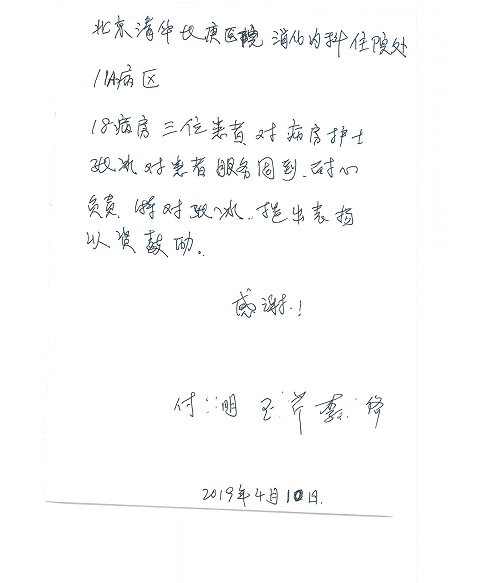 北京清华长庚医院 消化内科住院处
11A病区
18病房三位患者对病房护士
冰对患者服务周到.耐心
负责.特对 冰.提出表扬
以资鼓励。
感谢.!
付 明 王 芹 李
2019年4月10日.